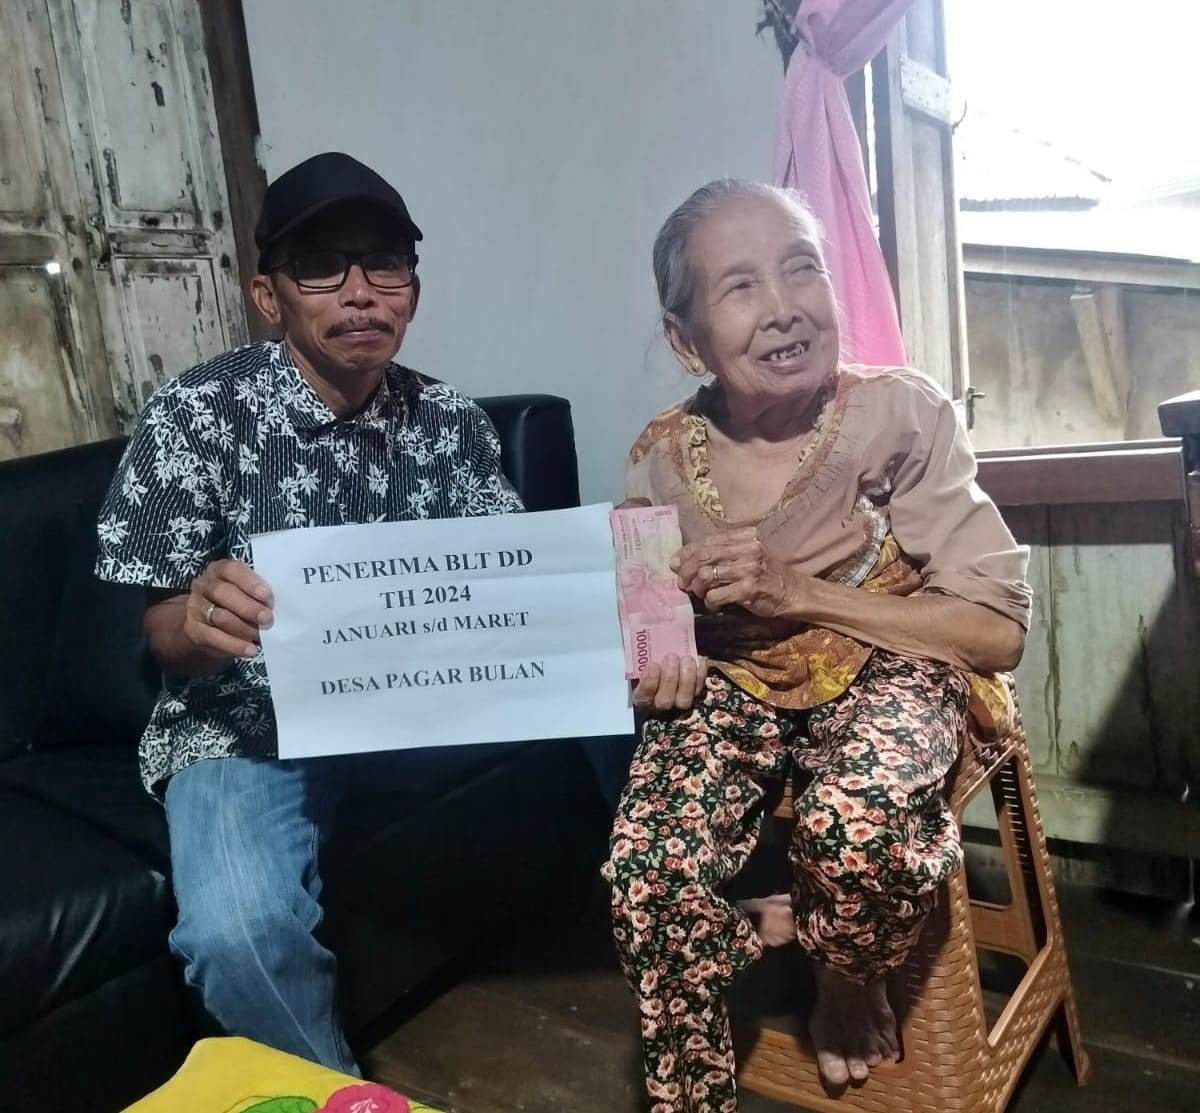 PENERIMA BLT DD
TH 2024
JANUARI s/d MARET
DESA PAGAR BULAN
100000